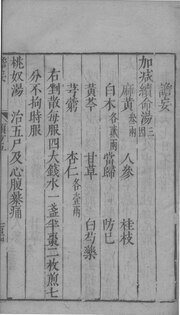 譫妄
加减續命湯三四
麻黄三兩 人參 桂枝
白术各貳兩 當歸 防已
黄芩 甘草 白芍藥
芎藭 杏仁各壹兩
右剉散每服四大錢水一盞半棗二枚煎七
分不拘時服
桃奴湯 治五尸及心腹暴痛